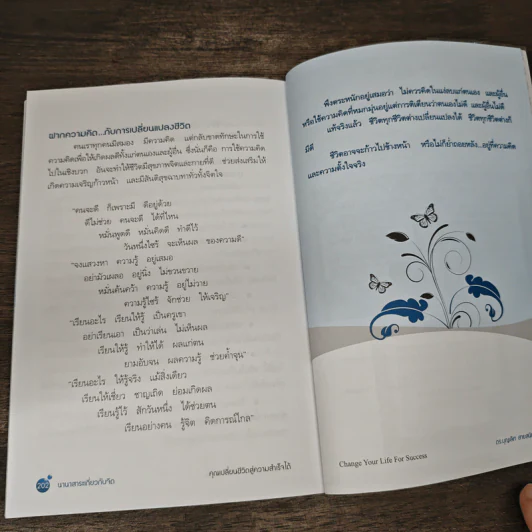 ฝากความคิด...กับการเปลี่ยนแปลงชีวิต
คนเราทุกคนมีสมอง มีความคิด แต่กลับขาดทักษะในการใช้
ความคิดเพื่อให้เกิดผลดีทั้งแก่ตนเองและผู้อื่น ซึ่งนั่นก็คือ การใช้ความคิด
ไปในเชิงบวก อันจะทำให้ชีวิตมีสุขภาพจิตและกายที่ดี ช่วยส่งเสริมให้
เกิดความเจริญก้าวหน้า และมีสันติสุขฉาบทาทั่วทั้งจิตใจ
"คนจะดี ก็เพราะมี ดีอยู่ด้วย
ดีไม่ช่วย คนจะดี ได้ที่ไหน
หมั่นพูดดี หมั่นคิดดี ทำดีไว้
วันหนึ่งไซร้ จะเห็นผล ของความดี"
"จงแสวงหา ความรู้ อยู่เสมอ
อย่ามัวเผลอ อยู่นิ่ง ไม่ขวนขวาย
หมั่นค้นคว้า ความรู้ อยู่ไม่วาย
ความรู้ไซร้ จักช่วย ให้เจริญ"
"เรียนอะไร เรียนให้รู้ เป็นครูเขา
อย่าเรียนเอา เป็นว่าเล่น ไม่เห็นผล
เรียนให้รู้ ทำให้ได้ ผลแก่ตน
ยามอับจน ผลความรู้ ช่วยค้ำจุน"
"เรียนอะไร ให้รู้จริง แม้สิ่งเดียว
เรียนให้เชี่ยว ชาญเถิด ย่อมเกิดผล
เรียนรู้ไว้ สักวันหนึ่ง ได้ช่วยตน
เรียนอย่างคน รู้จิต คิดการณ์ไกล"
คุณเปลี่ยนชีวิตสู่ความสำเร็จได้
202 นานาสาระเกี่ยวกับจิต
พึงตระหนักอยู่เสมอว่า ไม่ควรคิดในแง่ลบแก่ตนเอง และผู้อื่น
หรือใช้ความคิดที่หมกมุ่นอยู่แต่การติเตียนว่าตนเองไม่ดี และผู้อื่นไม่ดี
แท้จริงแล้ว ชีวิตทุกชีวิตต่างเปลี่ยนแปลงได้ ชีวิตทุกชีวิตต่างก็
มีดี
ชีวิตอาจจะก้าวไปข้างหน้า หรือไม่ก็ย่ำถอยหลัง...อยู่ที่ความคิด
และความตั้งใจจริง
Change Your Life For Success